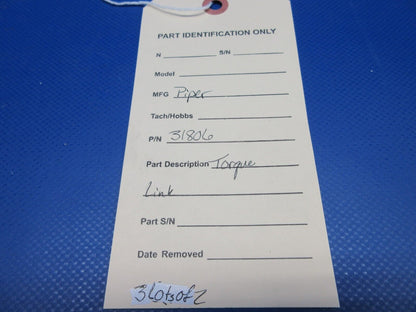 PART IDENTIFICATION ONLY
N S/N
Model
MFG Piper
Tach/Hobbs
P/N 31806
Part Description Torque
Link
Part S/N
Date Removed
3 Lots of 2